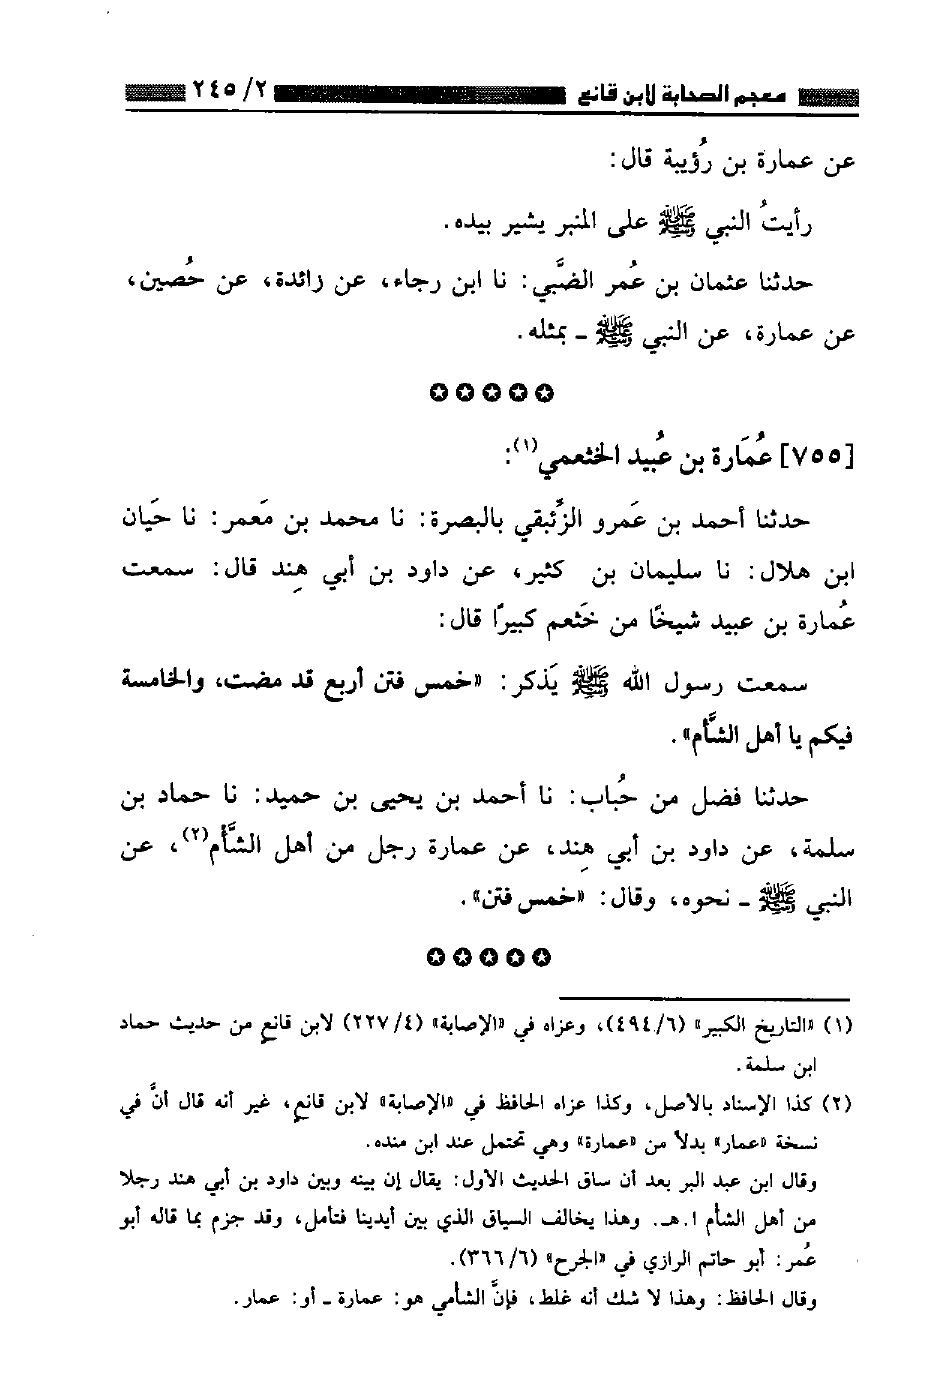 معجم الصحابة لابن قانع ٢/ ٢٤٥
عن عمارة بن رُؤيبة قال:
رأيتُ النبي ﷺ على المنبر يشير بيده.
حدثنا عثمان بن عُمر الضبَّي: نا ابن رجاء، عن زائدة، عن حُصين،
عن عمارة، عن النبي ﷺ ـ بمثله.
✪✪✪✪✪
[٧٥٥] عُمَارة بن عُبيد الخثعمي(١):
حدثنا أحمد بن عَمرو الزئبقي بالبصرة: نا محمد بن مَعمر: نا حَيان
ابن هلال: نا سليمان بن كثير، عن داود بن أبي هِند قال: سمعت
عُمارة بن عبيد شيخًا من خَثعم كبيرًا قال:
سمعت رسول الله ﷺ يَذكر: «خمس فتن أربع قد مضت، والخامسة
فيكم يا أهل الشَّأم».
حدثنا فضل من حُباب: نا أحمد بن يحيى بن حميد: نا حماد بن
سلمة، عن داود بن أبي هِند، عن عمارة رجل من أهل الشَّأم(٢)، عن
النبي ﷺ ـ نحوه، وقال: «خمس فتن».
✪✪✪✪✪
(١) «التاريخ الكبير» (٤٩٤/٦)، وعزاه في «الإصابة» (٢٢٧/٤) لابن قانع من حديث حماد
ابن سلمة.
(٢) كذا الإسناد بالأصل، وكذا عزاه الحافظ في «الإصابة» لابن قانع، غير أنه قال أنَّ في
نسخة «عمار» بدلاً من «عمارة» وهي تحتمل عند ابن منده.
وقال ابن عبد البر بعد أن ساق الحديث الأول: يقال إن بينه وبين داود بن أبي هند رجلا
من أهل الشأم ا.هـ. وهذا يخالف السياق الذي بين أيدينا فتأمل، وقد جزم بما قاله أبو
عُمر: أبو حاتم الرازي في «الجرح» (٣٦٦/٦).
وقال الحافظ: وهذا لا شك أنه غلط، فإنَّ الشأمي هو: عمارة ـ أو: عمار.